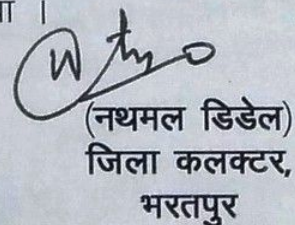 ा ।
(नथमल डिडेल)
जिला कलक्टर,
भरतपुर